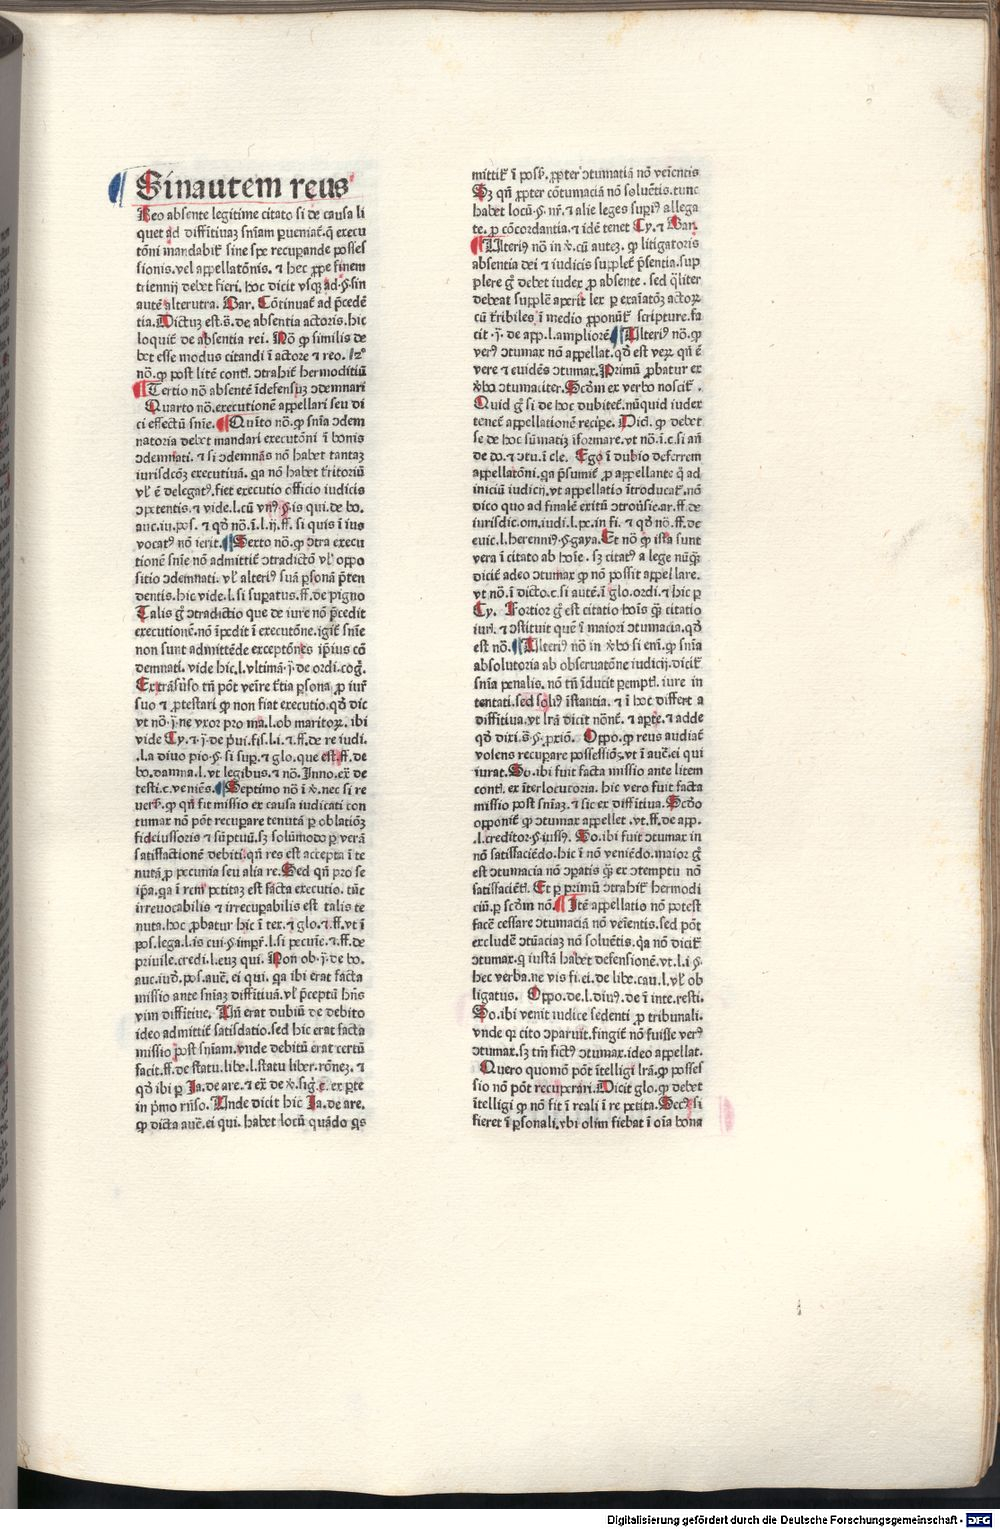 Sinautem reus
Reo absente legitime citato si de causa li
quet ad diffitiuaʒ snīam ꝑueniat̄.q̄ execu
tōni mandabit̄ sine spe recuꝑande posses
sionis.vel appellatōnis.⁊ hec ꝓpe finem
triennij debet fieri.hoc dicit vsqʒ ad.§.sin
autē alterutra. Bar. Cōtinuat̄ ad p̄cedē
tia.Dictuʒ est.s̄.de absentia actoris.hic
loquit̄ de absentia rei. Nō ꝙ similis de
bet esse modus citandi ī actore ⁊ reo. 2°
nō.ꝙ post litē contꝭ.ↄtrahit̄ hermoditiū
Tertio nō absentē īdefensuʒ ↄdemnari
Quarto nō.executionē appellari seu di
ci effectū snīe. Quīto nō.ꝙ snīa ↄdem
natoria debet mandari executōni ī bonis
ↄdemnati.⁊ si ↄdemnās nō habet tantaʒ
iurisdcōʒ executiuā.qa nō habet t̄ritoriū
vꝉ ē delegatꝰ.fiet executio officio iudicis
ↄpetentis.⁊ vide.l.cū vnꝰ.§.is qui.de bo.
auc.iu.pos.⁊ qꝺ nō.ī.l.ij.ff.si quis ī ius
vocatꝰ nō ierit. Sexto nō.ꝙ ↄtra execu
tionē snīe nō admittit̄ ↄtradictō vꝉ oppo
sitio ↄdemnati.vꝉ alteriꝰ suā ꝑsonā p̄ten
dentis.hic vide.l.si suꝑatus.ff.de pigno
Talis gͦ ↄtradictio que de iure nō p̄cedit
executionē.nō īpedit ī executōne.igit̄ snīe
non sunt admittēde exceptōnes ip̄ius cō
demnati.vide hic.l.vltimā.j̄.de ordi.coḡ.
Extrāsūso tn̄ pōt veīre t̄tia ꝑsona ꝓ iur̄
suo ⁊ ꝓtestari ꝙ non fiat executio.qꝺ dic
vt nō.j̄.ne vxor pro ma.l.ob maritoꝝ.ibi
vide Cy.⁊.j̄.de p̄ui.fis.l.i.⁊.ff.de re iudi.
.l.a diuo pio.§.si suꝑ.⁊ glo.que est.ff.de
bo.damna.l.vt legibus.⁊ nō.Inno.ex̄ de
testi.c.veniēs. Septimo nō ī v̄.nec si re
uert̄.ꝙ qn̄ fit missio ex causa iudicati con
tumax nō pōt recuꝑare tenutā ꝑ oblatiōʒ
fideiussoris ⁊ sūptuū.sʒ solūmodo ꝑ verā
satisfactionē debiti.qn̄ res est accepta ī te
nutā ꝓ pecunia seu alia re. Sed qn̄ pro se
ip̄a.qa ī rem petitaʒ est facta executio.tūc
irreuocabilis ⁊ irrecuꝑabilis est talis te
nuta.hoc ꝓbatur hic ī tex.⁊ glo.⁊.ff.vt ī
pos.lega.l.is cui.§.impr̄.l.si pecunie.⁊.ff.de
priuile.credi.l.euʒ qui. Non ob.j̄.de bo.
auc.iud̄.pos.auc̄.ei qui.qa ibi erat facta
missio ante snīaʒ diffitiuā.vꝉ p̄ceptū hn̄s
vim diffitiue. In erat dubiū de debito
ideo admittit̄ satisdatio.sed hic erat facta
missio post snīam.vnde debitū erat certū
facit.ff.de statu.libe.l.statu liber.rōneʒ.⁊
qꝺ ibi ꝑ Ja.de are.⁊ ex̄ de v̄.siḡ.c.ex ꝑte
in p̄mo rn̄so. Unde dicit hic Ja.de are.
ꝙ dicta auc̄.ei qui.habet locū quādo qͥs
mittit̄ ī posꝭ.ꝓpter ↄtumatiā nō veīentis
Sʒ qn̄ ꝓpter cōtumaciā nō soluētis.tunc
habet locū.§.nr̄.⁊ alie leges supriꝰ allega
te.ꝑ cōcordantia.⁊ idē tenet Cy.⁊ Bar.
Ulteriꝰ nō in v̄.cū auteʒ.ꝙ litigatoris
absentia dei ⁊ iudicis supplet̄ p̄sentia.sup
plere gͦ debet iudex ꝓ absente.sed qͣliter
debeat supplē aperit lex ꝑ exaīatōʒ actoꝝ
cū t̄ribiles ī medio ꝓponūt̄ scripture.fa
cit.j̄.de app.l.ampliorē. Ulteriꝰ nō.ꝙ
verꝰ ↄtumax nō appellat.qꝺ est veꝝ qn̄ ē
vere ⁊ euidēs ↄtumax. Primū ꝓbatur ex
v̄bo ↄtumaciter. Scd̄m ex verbo noscit̄.
Quid gͦ si de hoc dubitet̄.nūquid iudex
tenet̄ appellationē recipe. Dic̄.ꝙ debet
se de hoc sūmatiʒ īformare.vt nō.ī.c.si an̄
de do.⁊ ↄtu.ī cle. Ego ī dubio deferrem
appellatōni.qa p̄sumit̄ ꝓ appellante q̄ ad
iniciū iudicij.vt appellatio ītroducat̄.nō
dico quo ad finalē exitū ↄtrouͤsie.ar.ff.de
iurisdic.om.iudi.l.pe.in fi.⁊ qꝺ nō.ff.de
euic.l.herenniꝰ.§.gaya. Et nō ꝙ ista sunt
vera ī citato ab hoīe.sʒ citatꝰ a lege nūqͣʒ
dicit̄ adeo ↄtumax ꝙ nō possit appellare.
vt nō.ī dicto.c.si autē.ī glo.ordi.⁊ hic ꝑ
Cy. Fortior gͦ est citatio hoīs qͣʒ citatio
iurꝭ.⁊ ↄstituit quē ī maiori ↄtumacia.qꝺ
est nō. Ulteriꝰ nō in v̄bo si eni.ꝙ snīa
absolutoria ab obseruatōne iudicij.dicit̄
snīa penalis.nō tn̄ īducit ꝑemptꝭ.iure in
tentati.sed soliꝰ īstantia.⁊ ī hoc differt a
diffitiua.vt lrā dicit nōnt̄.⁊ aꝑte.⁊ adde
qꝺ dixi.s̄.§.ꝓxiō. Oppo.ꝙ reus audiat̄
volens recuꝑare possessiōʒ.vt ī auc̄.ei qui
iurat. So.ibi fuit facta missio ante litem
contꝭ.ex īterlocutoria.hic vero fuit facta
missio post snīaʒ.⁊ sic ex diffitiua. Scd̄o
opponit̄ ꝙ ↄtumax appellet.vt.ff.de app.
.l.creditor.§.iussꝰ. So.ibi fuit ↄtumax in
nō satisfaciēdo.hic ī nō veniēdo.maior gͦ
est ↄtumacia nō ↄꝑatis qͣʒ ex ↄtemptu nō
satisfaciētꝭ. Et ꝑ primū ↄtrahit̄ hermodi
ciū.ꝑ scd̄m nō. Itē appellatio nō potest
facē cessare ↄtumaciā nō veīentis.sed pōt
excludē ↄtūaciaʒ nō soluētis.qa nō dicit̄
ↄtumax.q iustā habet defensionē.vt.l.i.§.
hec verba.ne vis fi.ei.de libe.cau.l.vꝉ ob
ligatus. Oppo.de.l.diuꝰ.de ī inte.resti.
So.ibi venit iudice sedenti ꝓ tribunali.
vnde qꝛ cito ↄparuit.fingit̄ nō fuisse verꝰ
ↄtumax.sʒ tm̄ fictꝰ ↄtumax.ideo appellat.
Quero quomō pōt ītelligi lrā.ꝙ posses
sio nō pōt recuperari. Dicit glo.ꝙ debet
ītelligi ꝙ nō fit ī reali ī re petita. Secꝰ si
fieret ī ꝑsonali.vbi olim fiebat ī oīa bona
Digitalisierung gefördert durch die Deutsche Forschungsgemeinschaft - DFG